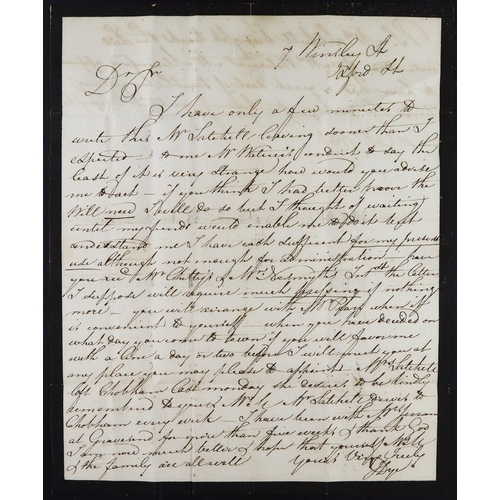 7 Winsley St
Oxford St
Dr Sir
I have only a few minutes to
write this Mr Satchell leaving sooner than I
expected - to me Mr conduct to say the
least of it is very strange how would you advise
me to act if you think I had better prove the
Will now I will do so but I thought of waiting
until my funds would enable me to do it but
understand me I have cash sufficient for my present
use although not enough for administration - have
you recd Mr & Mr the latter
I suppose will require much pressing if nothing
more - you will arrange with Mr when it
is convenient to yourself - when you have decided on
what day you come to town if you will favor me
with a line a day or two before I will meet you at
any place you may please to appoint - Mrs Satchell
left Chobham last monday she desires to be kindly
remembered to you & Mrs Mr Satchell drives to
Chobham every week - I have been with
at Gravesend for more than five weeks & thank God
I am now much better & hope that yourself Mrs
& the family are all well Yours Very Truly